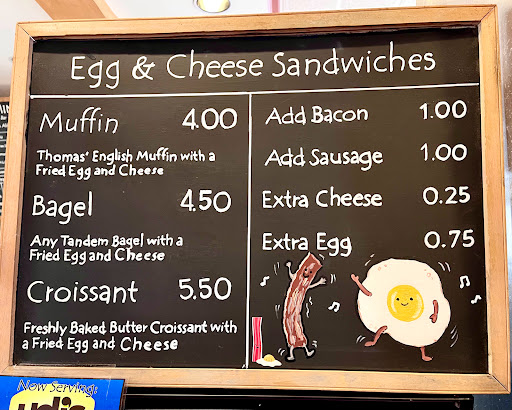 Egg & Cheese Sandwiches
Muffin 4.00
Thomas' English Muffin with a
Fried Egg and Cheese
Bagel 4.50
Any Tandem Bagel with a
Fried Egg and Cheese
Croissant 5.50
Freshly Baked Butter Croissant with
a Fried Egg and Cheese
Add Bacon 1.00
Add Sausage 1.00
Extra Cheese 0.25
Extra Egg 0.75
Now Serving:
udi's